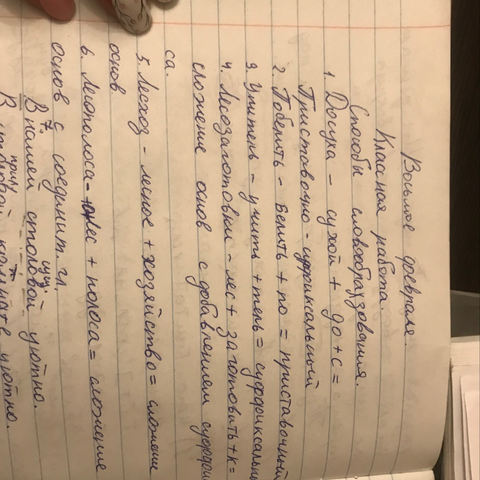 Восьмое февраля.
Классная работа.
Способы словообразования.
1. Досуха - сухой + до + с =
Приставочно-суффиксальный
2. Поверить - верить + по = приставочный
3. Учитель - учить + тель = суффиксальный
4. Лесозаготовки - лес + заготовить + к =
сложение основ с добавлением суффик
са.
5. Лесхоз - лесное + хозяйство = сложение
основ
6. Лесополоса - лес + полоса = сложение
основ с соединит. гл.
7. сущ.
В нашей столовой уютно.
прил
В столовой комнате уютно.